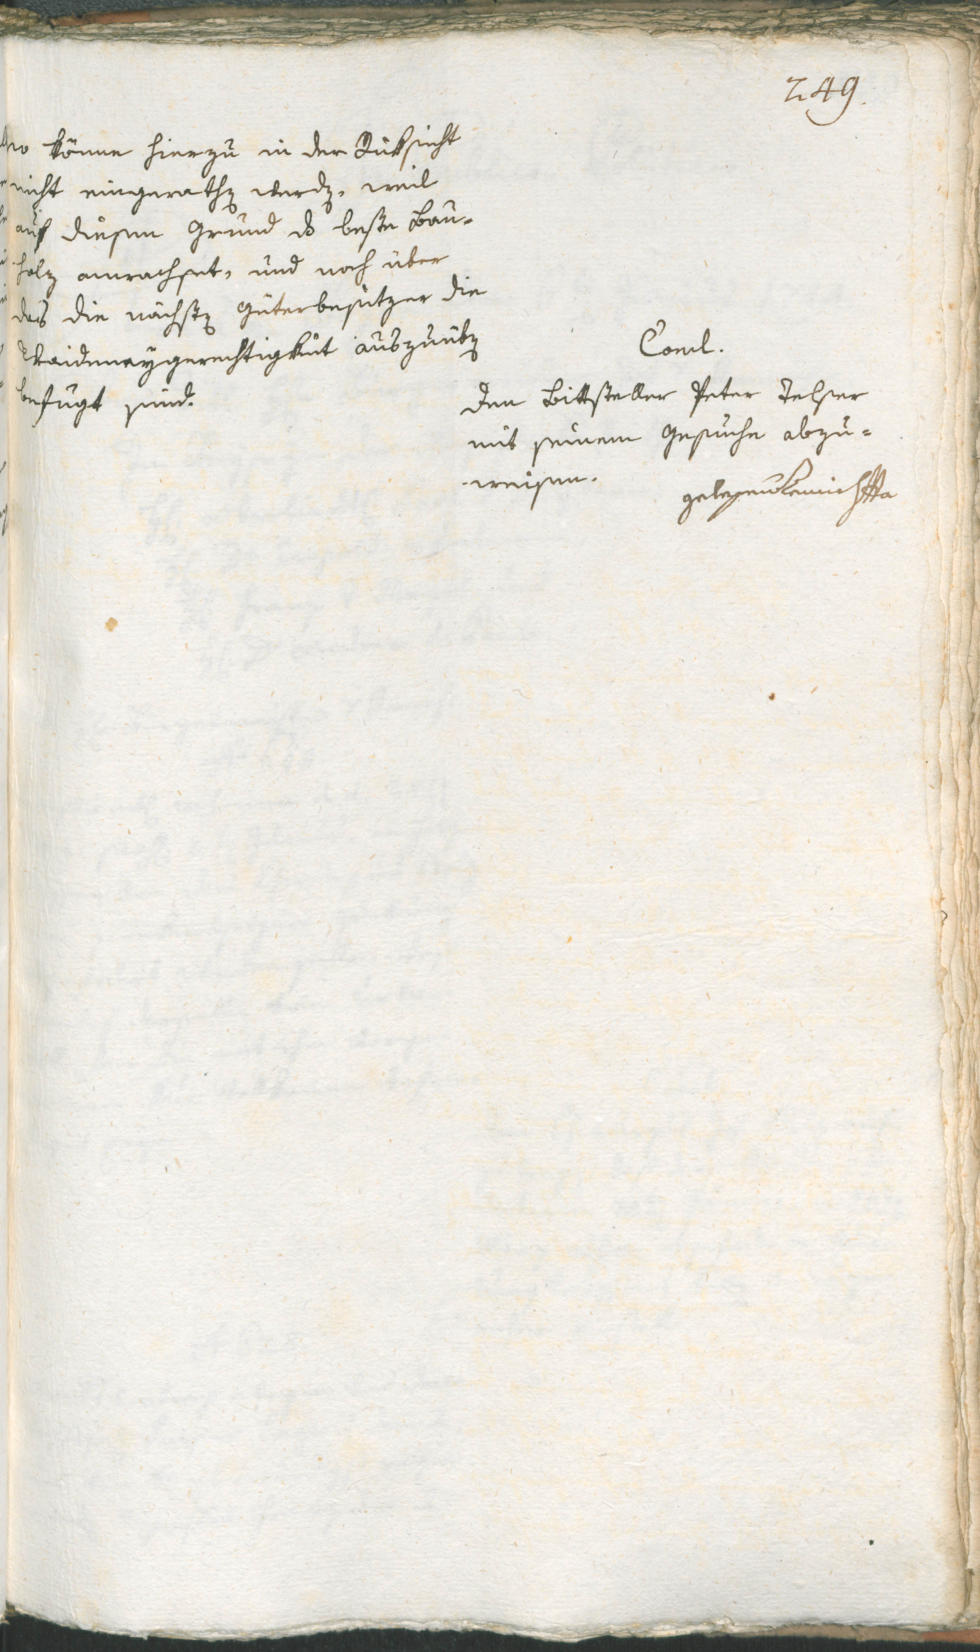 249.
so könne hierzu in der Rüksicht
nicht eingerathen werden, weil
auf diesem Grund das beste Bau-
holz anwachset, und noch über
das die nächsten Güterbesitzer die
Waideneygerechtigkeit auszuüben
befugt sind.
Concl.
Den Bittsteller Peter Telser
mit seinem Gesuche abzu-
weisen.